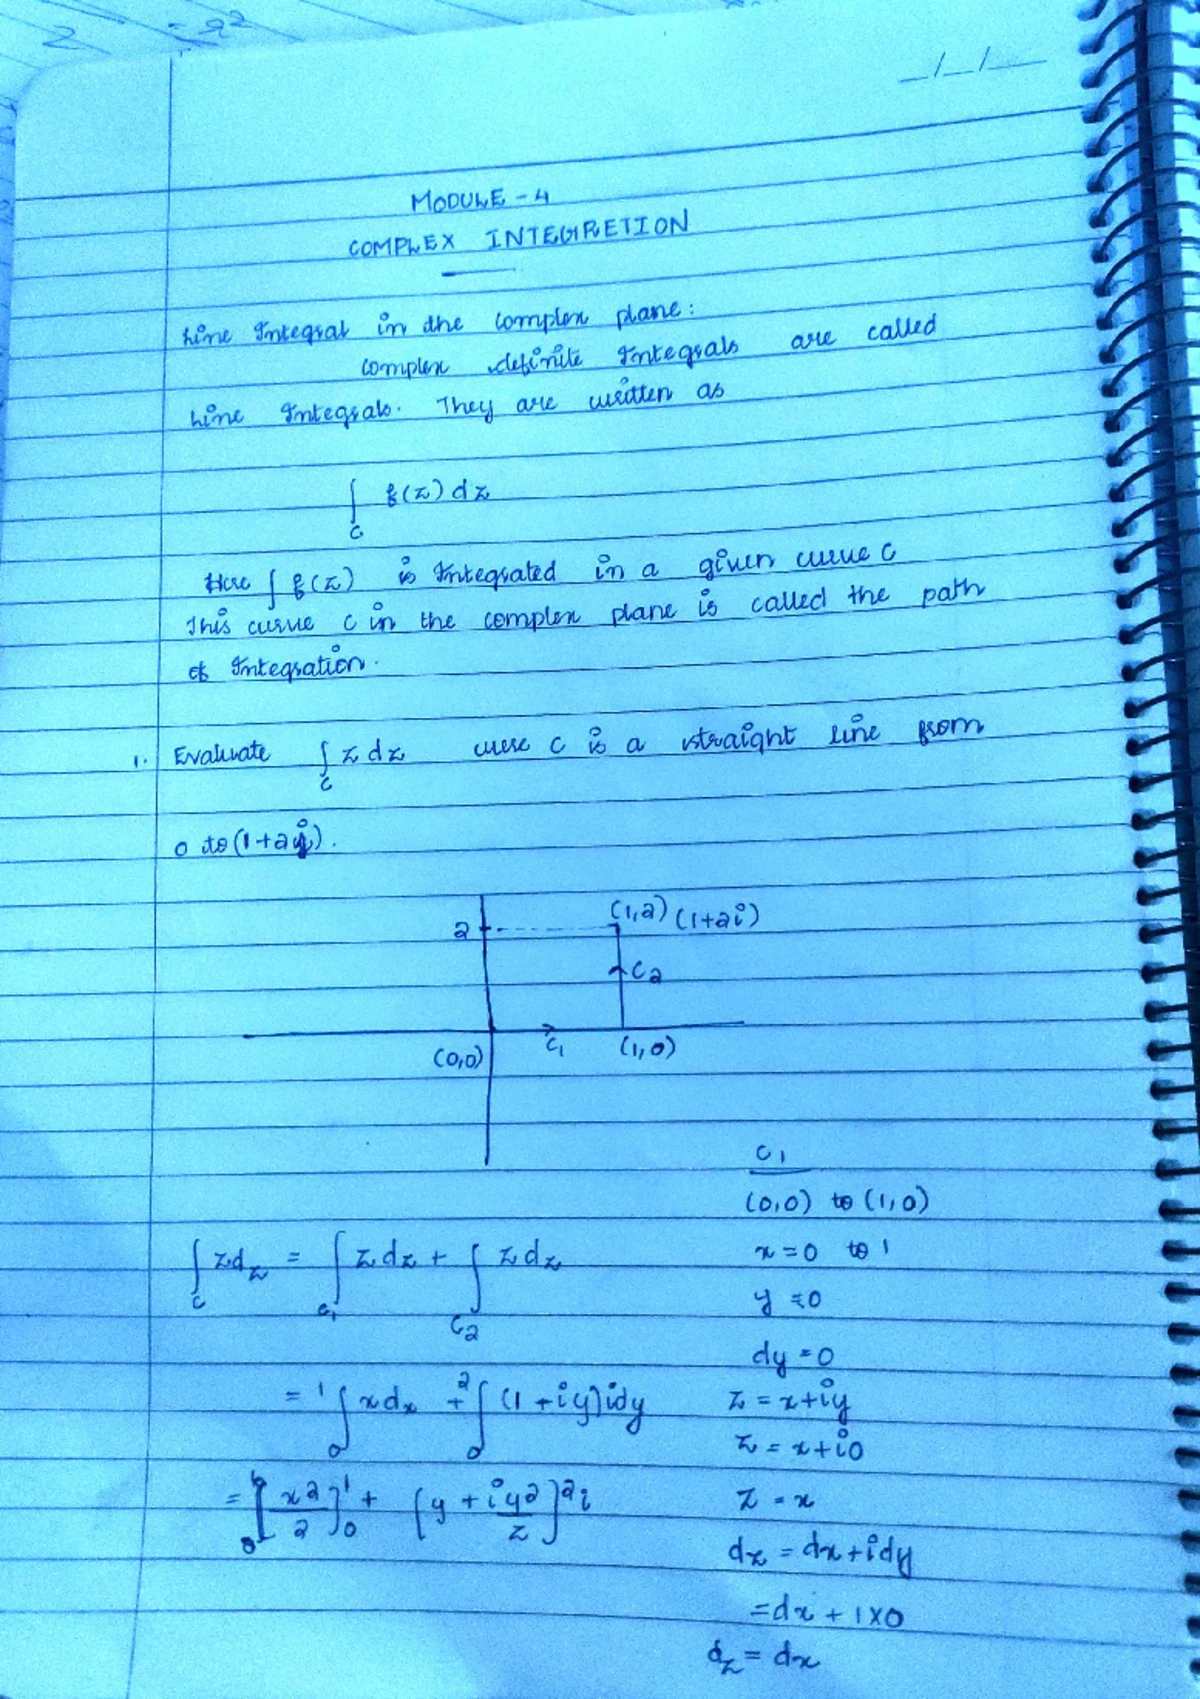 _/_/__
MODULE - 4
COMPLEX INTEGRETION
Line Integral in the complex plane:
complex definite Integrals are called
Line Integrals. They are written as
∫_C f(z) dz
Here ∫ f(z) is Integrated in a given curve C
This curve C in the complex plane is called the path
of Integration.
1. Evaluate ∫_C z dz were C is a straight line from
0 to (1+2i).
2 (1,2) (1+2i)
C2
(0,0) C1 (1,0)
C1
(0,0) to (1,0)
∫_C zdz = ∫_C1 z dz + ∫_C2 z dz
x = 0 to 1
y = 0
dy = 0
= ∫_0^1 x dx + ∫_0^2 (1 + iy) idy
z = x + iy
z = x + i0
= [x2/2]_0^1 + [y + iy2/2]^2 i
z = x
dz = dx + idy
= dx + 1×0
dz = dx